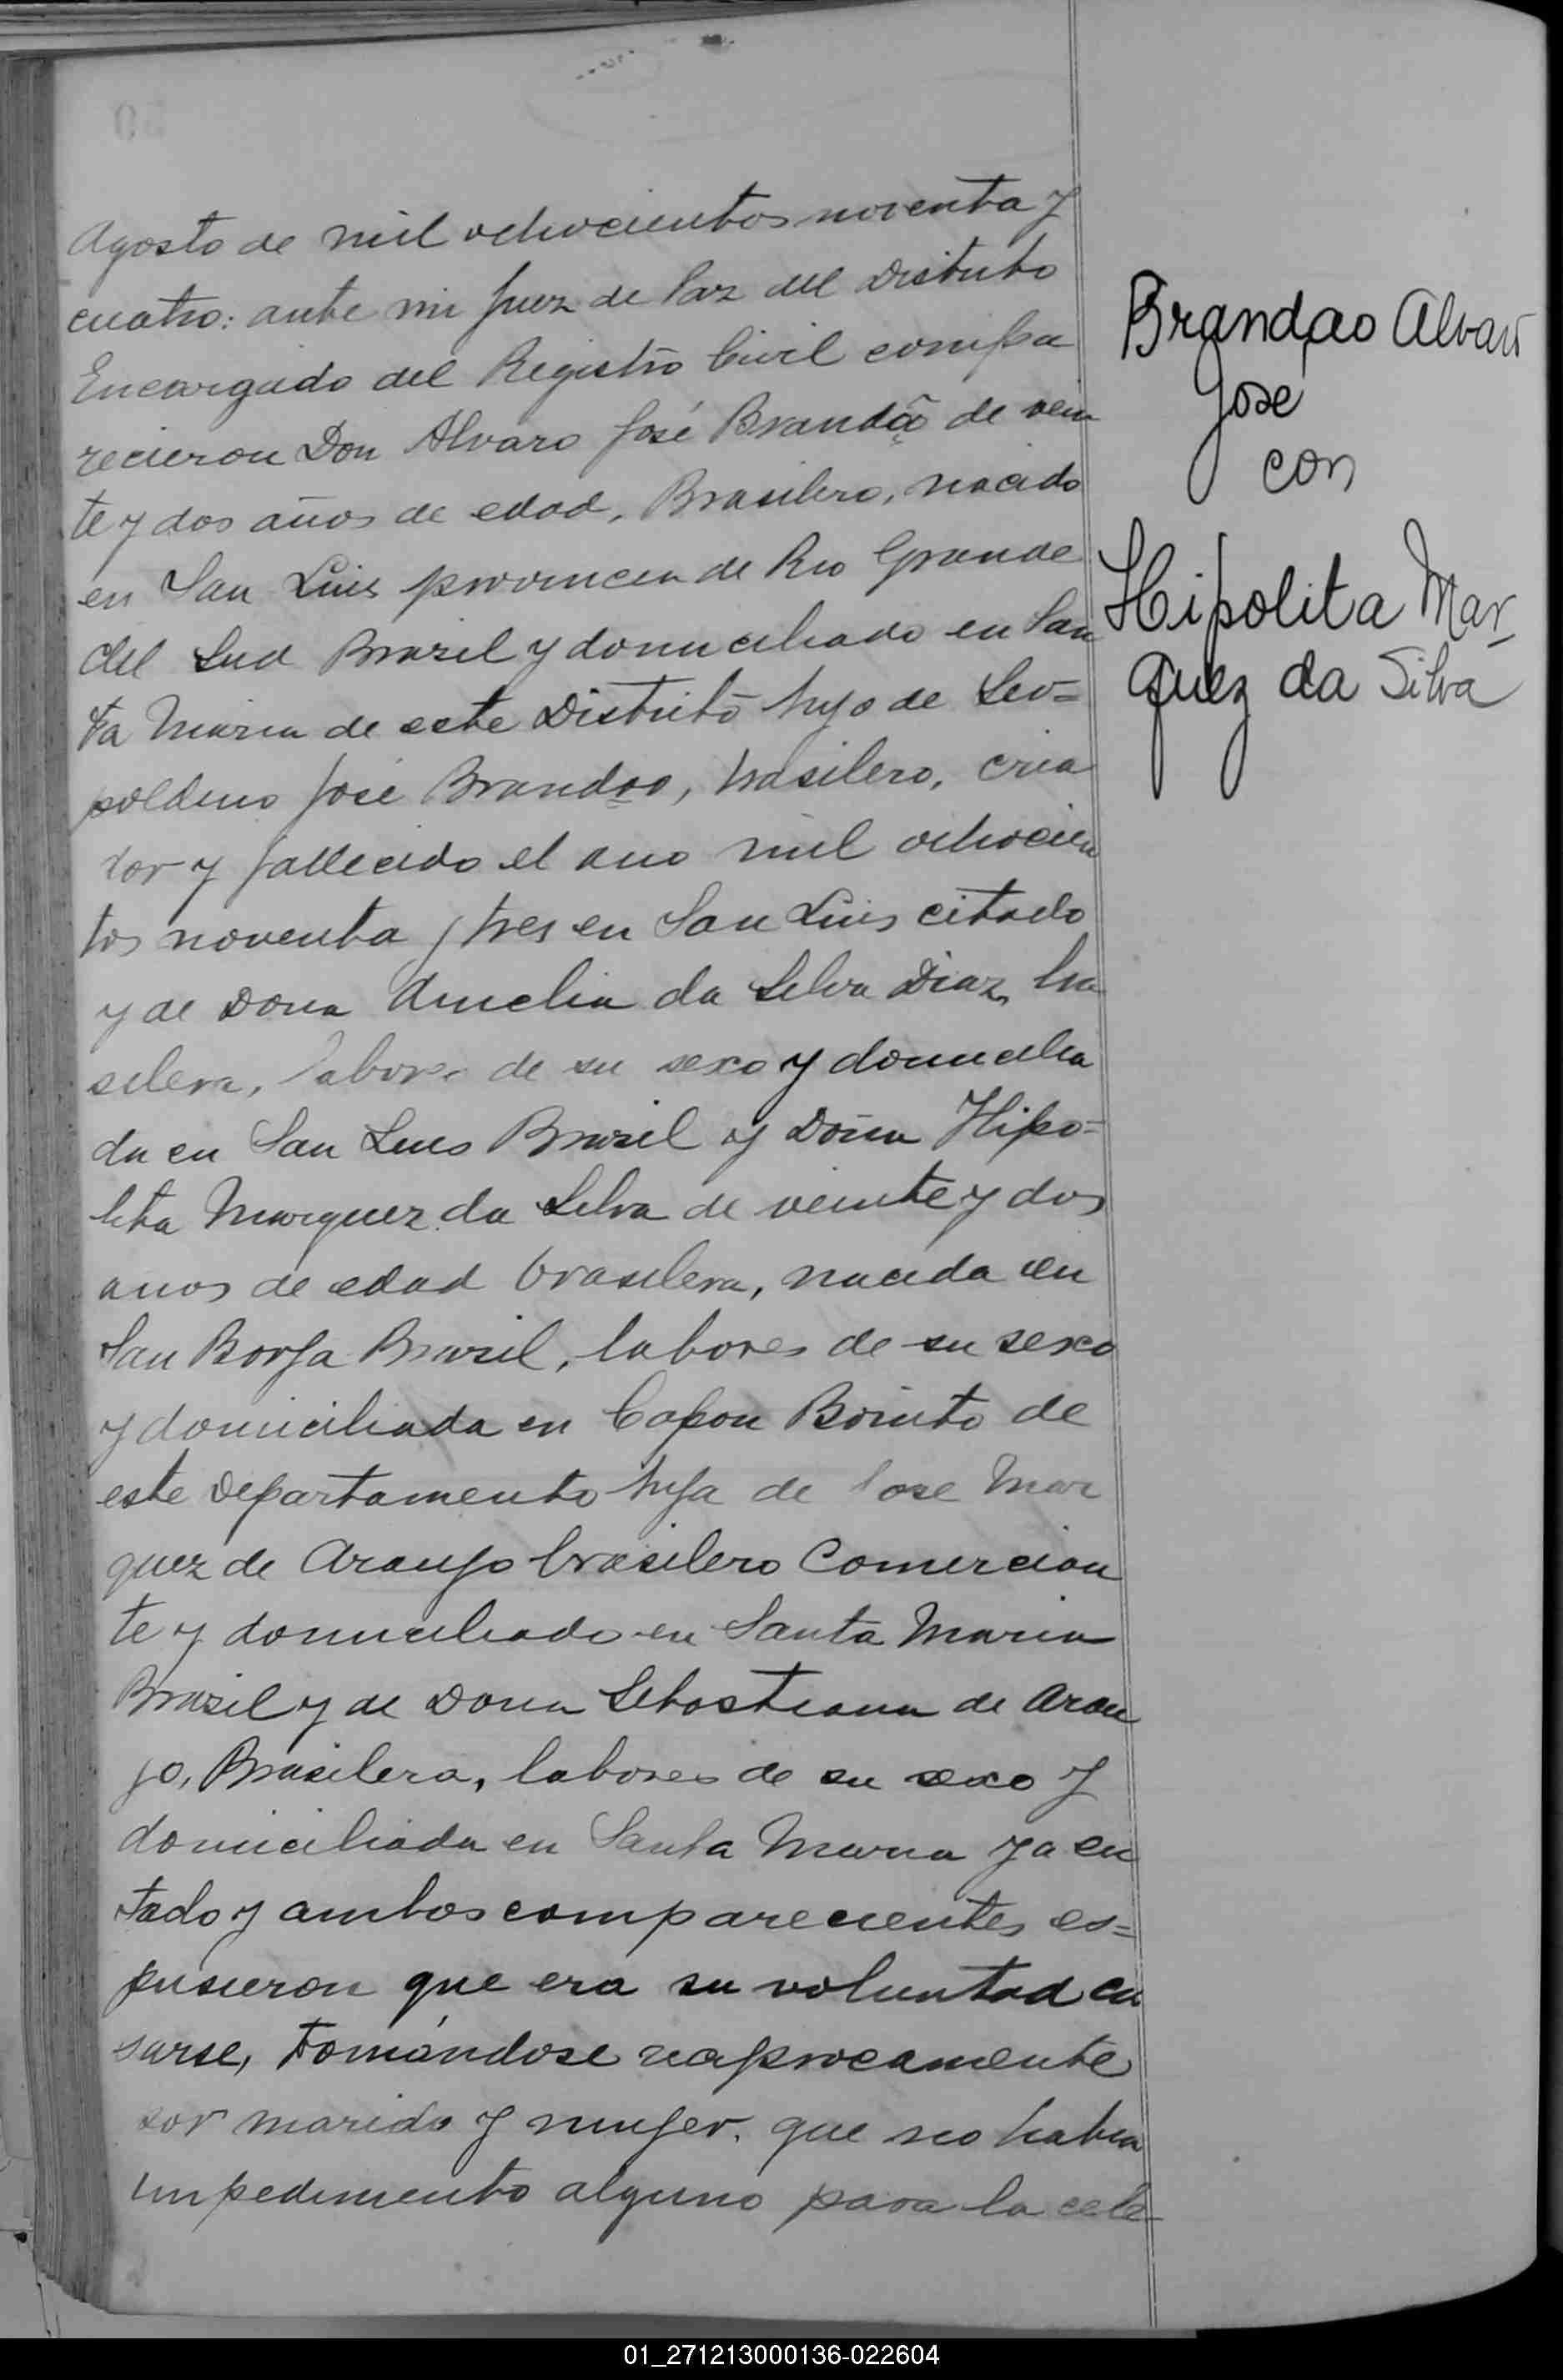 Agosto de mil ochocientos noventa y
cuatro: ante mi Juez de Paz del Distrito
Encargado del Registro Civil compa
recieron Don Alvaro José Brandão de vein
te y dos años de edad, Brasilero, nacido
en San Luis provincia de Rio Grande
del Sud Brazil y domiciliado en San
ta Maria de este Distrito hijo de Leo=
poldino José Brandao, brasilero, cria
dor y fallecido el ano mil ochocien
tos noventa y tres en San Luis citado
y de Dona Amelia da Silva Diaz, bra
silera, labores de su sexo y domicilia
da en San Luis Brazil y Doña Hipo=
lita Marquez da Silva de veinte y dos
anos de edad brasilera, nacida en
San Borja Brazil, labores de su sexo
y domiciliada en Capon Bonito de
este Departamento hija de Jose Mar
quez de Araujo brasilero Comercian
te y domiciliado en Santa Maria
Brazil y de Dona Sebastiana de Arau
jo, Brasilera, labores de su sexo y
domiciliada en Santa Maria ya ci
tado y ambos comparecientes es=
pusieron que era su voluntad ca
sarse, tomándose reciprocamente
por marido y mujer, que no habia
impedimento alguno para la cele
Brandao Alvaro
José
con
Hipolita Mar_
quez da Silva
01_271213000136-022604